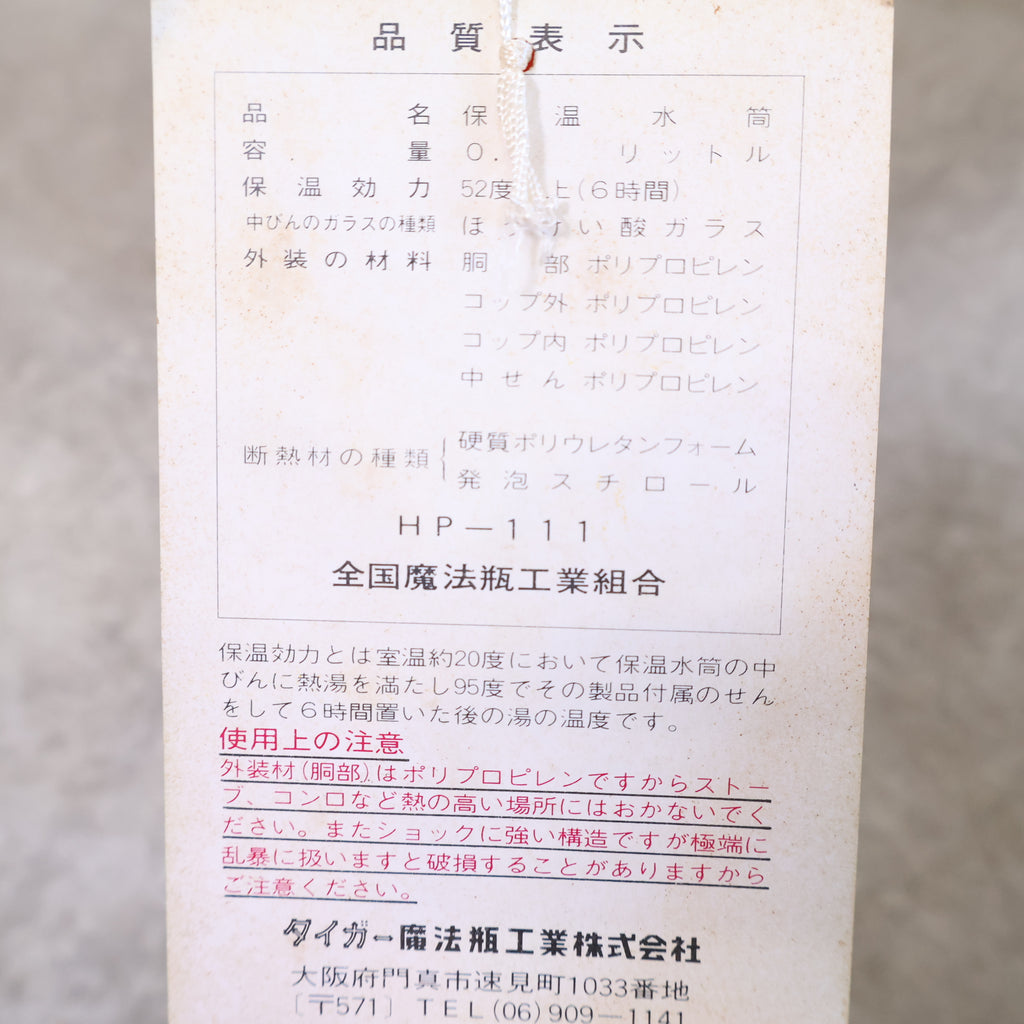 品質表示
品名 保温水筒
容量 0. リットル
保温効力 52度 上(6時間)
中びんのガラスの種類 ほ い酸ガラス
外装の材料 胴部 ポリプロピレン
コップ外 ポリプロピレン
コップ内 ポリプロピレン
中せん ポリプロピレン
断熱材の種類 硬質ポリウレタンフォーム
発泡スチロール
HP-111
全国魔法瓶工業組合
保温効力とは室温約20度において保温水筒の中
びんに熱湯を満たし95度でその製品付属のせん
をして6時間置いた後の湯の温度です。
使用上の注意
外装材(胴部)はポリプロピレンですからストー
ブ、コンロなど熱の高い場所にはおかないでく
ださい。またショックに強い構造ですが極端に
乱暴に扱いますと破損することがありますから
ご注意ください。
タイガー魔法瓶工業株式会社
大阪府門真市速見町1033番地
〔〒571〕TEL(06)909-1141